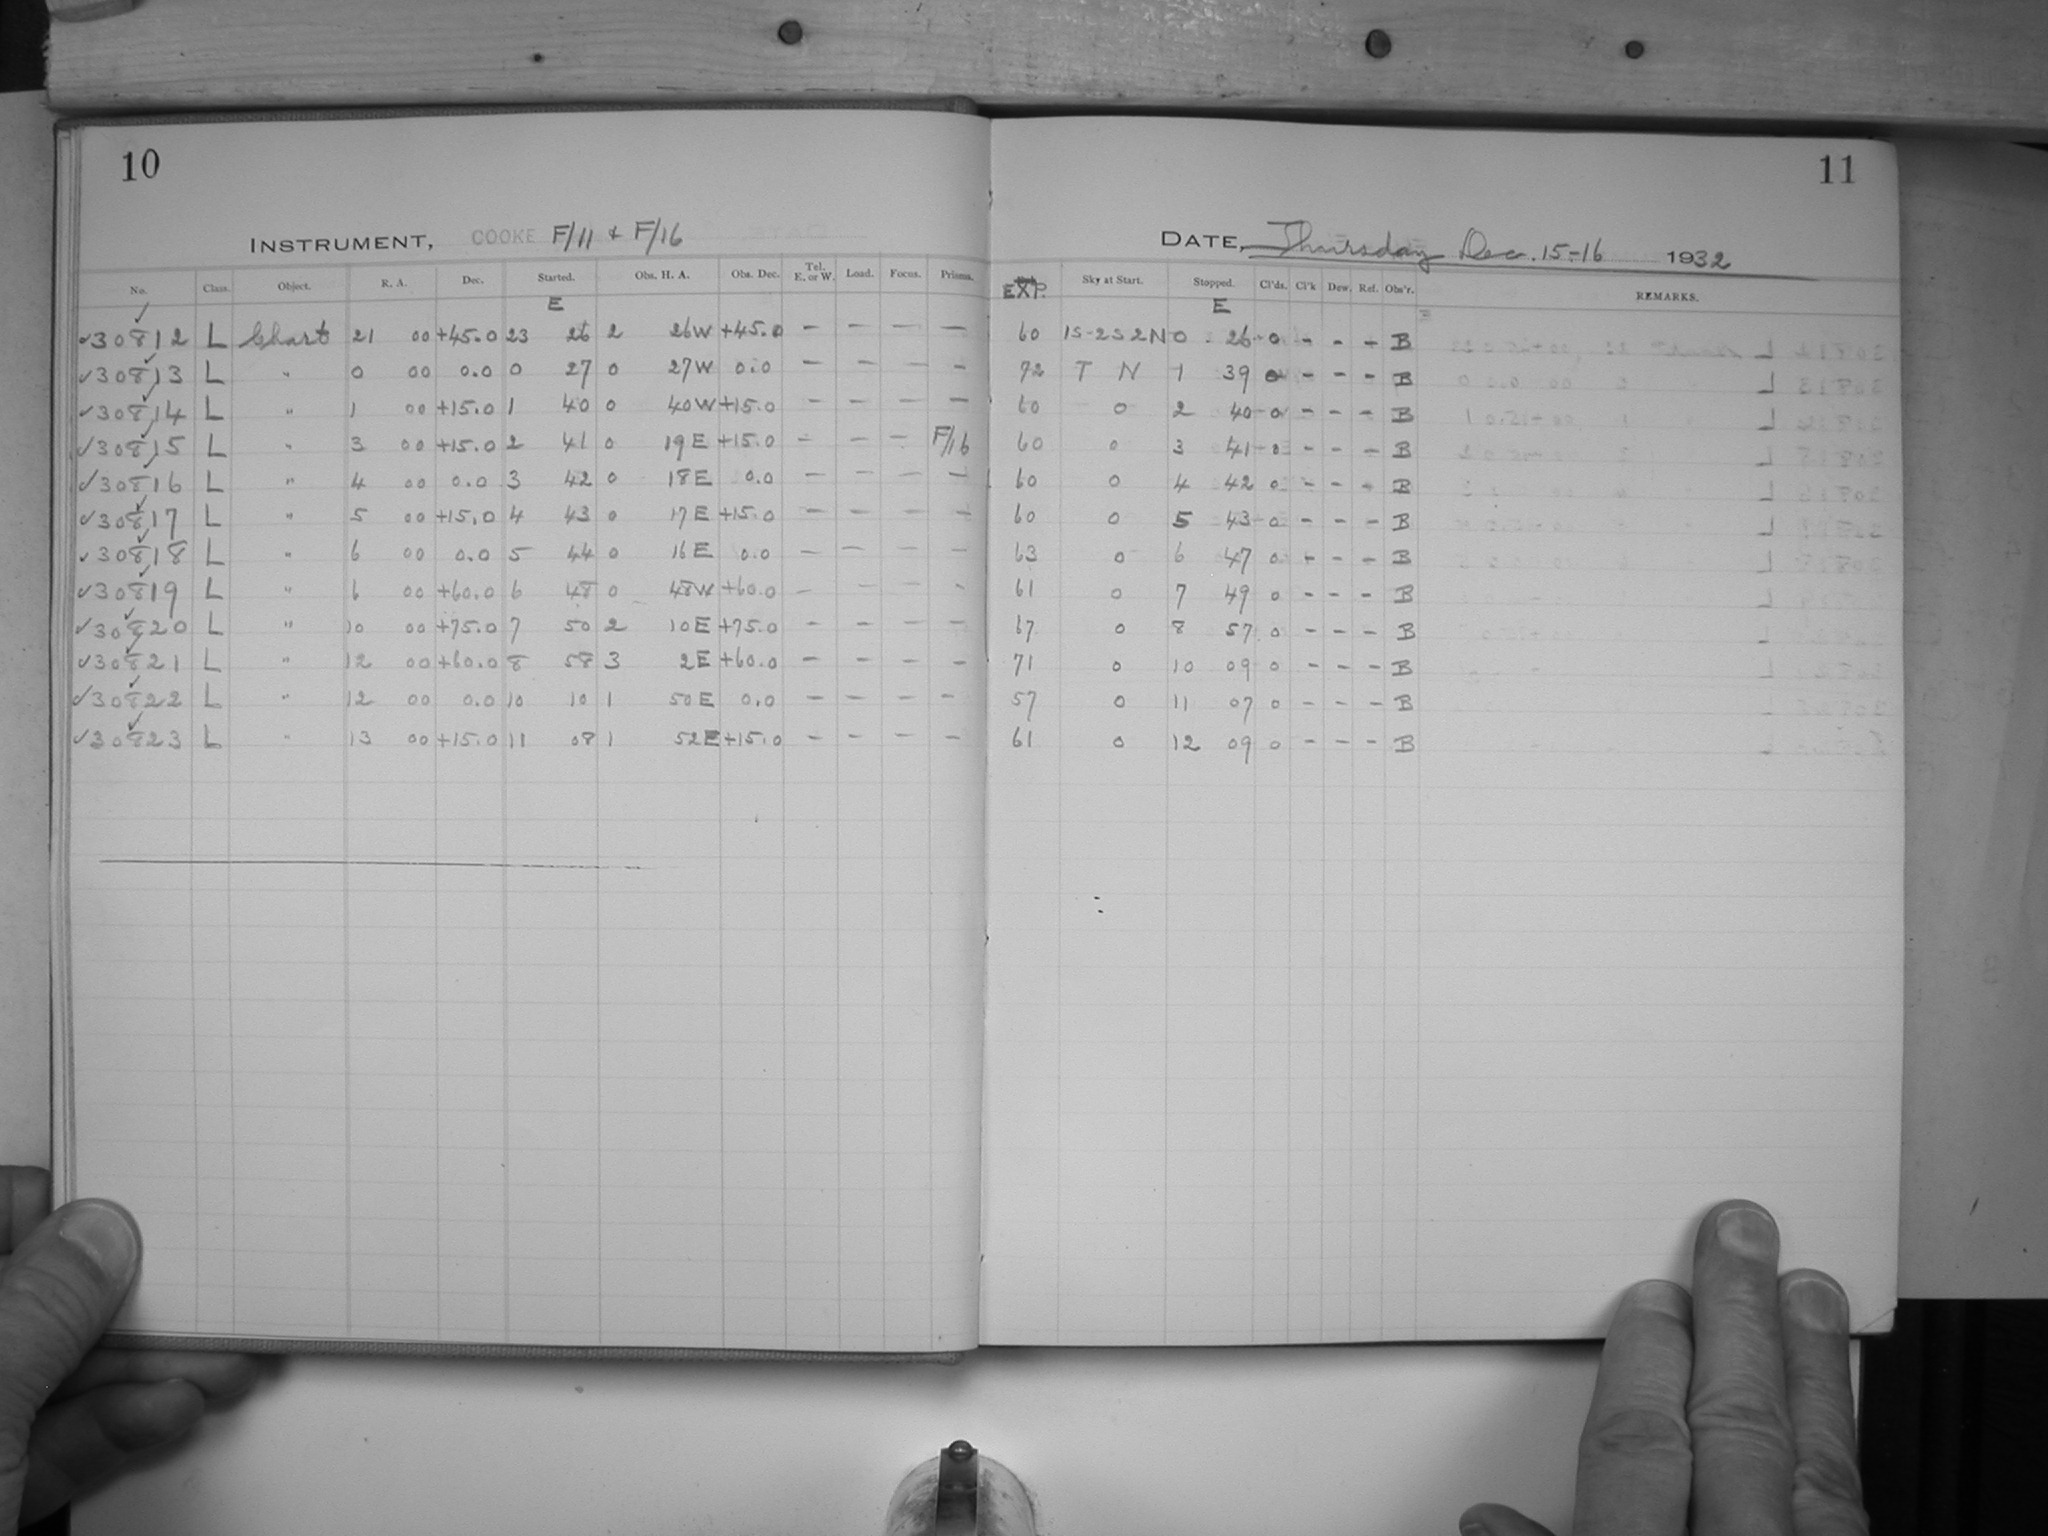 10
INSTRUMENT, COOKE F/11 & F/16
No. Class. Object. R. A. Dec. Started. Obs. H. A. Obs. Dec. Tel. E. or W. Load. Focus. Prisms.
E
✓30812 L Chart 21 00 +45.0 23 26 2 26W +45.0 — — — —
✓30813 L " 0 00 0.0 0 27 0 27W 0.0 — — — —
✓30814 L " 1 00 +15.0 1 40 0 40W +15.0 — — — —
✓30815 L " 3 00 +15.0 2 41 0 19E +15.0 — — — F/16
✓30816 L " 4 00 0.0 3 42 0 18E 0.0 — — — —
✓30817 L " 5 00 +15.0 4 43 0 17E +15.0 — — — —
✓30818 L " 6 00 0.0 5 44 0 16E 0.0 — — — —
✓30819 L " 6 00 +60.0 6 48 0 48W +60.0 — — — -
✓30820 L " 10 00 +75.0 7 50 2 10E +75.0 — — — —
✓30821 L " 12 00 +60.0 8 58 3 2E +60.0 — — — —
✓30822 L " 12 00 0.0 10 10 1 50E 0.0 — — — —
✓30823 L " 13 00 +15.0 11 08 1 52E +15.0 — — — —
11
DATE, Thursday Dec. 15-16 1932
EXP. Sky at Start. Stopped. Cl'ds. Cl'k Dew. Ref. Obs'r. REMARKS.
E
60 1S-2S2N 0 26 0 - - - B
72 T N 1 39 0 - - - B
60 0 2 40 0 - - - B
60 0 3 41 0 - - - B
60 0 4 42 0 - - - B
60 0 5 43 0 - - - B
63 0 6 47 0 - - - B
61 0 7 49 0 - - - B
67 0 8 57 0 - - - B
71 0 10 09 0 - - - B
57 0 11 07 0 - - - B
61 0 12 09 0 - - - B